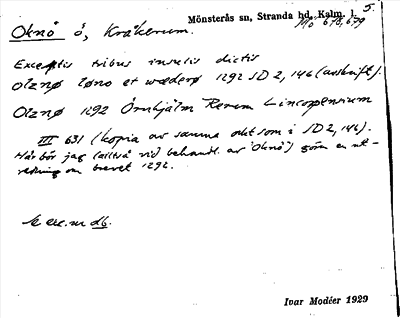 5.
Mönsterås sn, Stranda hd, Kalm. l.
Oknö ö, Kråkerum. Mö 678, 679
Exceptis tribus insulis dictis
Olznø Løno et wæderø 1292 SD 2, 146 (avskrift).
Olznø 1292 Örnhjälm Rerum Lincopensium
III 631 (kopia av samma akt som i SD 2, 146).
Här bör jag (alltså vid behandl. av "Oknö") göra en ut-
redning om brevet 1292.
Se ex. m db.
Ivar Modéer 1929